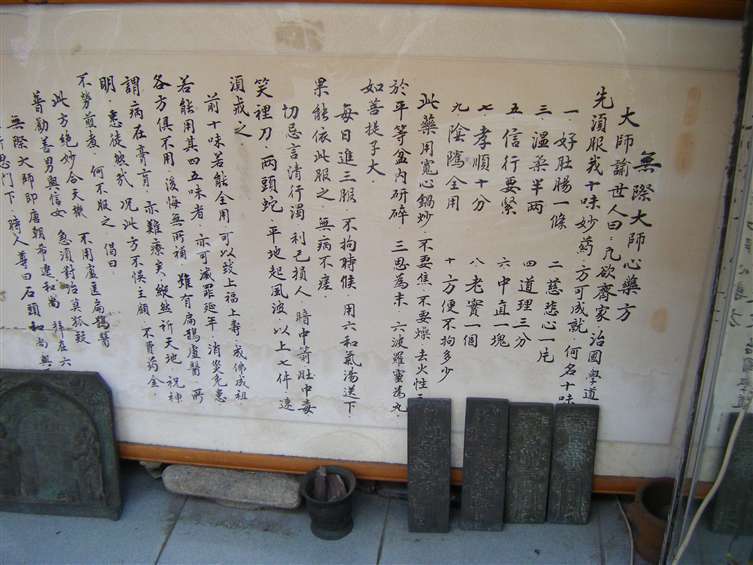 無際大師心藥方
大師諭世人曰：凡欲齊家治國學道
先須服我十味妙藥，方可成就，何名十味
一、好肚腸一條 二、慈悲心一片
三、溫柔半兩 四、道理三分
五、信行要緊 六、中直一塊
七、孝順十分 八、老實一個
九、陰隲全用 十、方便不拘多少
此藥用寬心鍋炒，不要焦，不要燥，去火性三
於平等盆內研碎，三思為末，六波羅蜜為丸，
如菩提子大，
每日進三服，不拘時候，用六和氣湯送下
果能依此服之，無病不瘥，
切忌言清行濁，利己損人，暗中箭，肚中毒
笑裡刀，兩頭蛇，平地起風波，以上七件，速
須戒之，
前十味若能全用，可以致上福上壽，成佛成祖
若能用其四五味者，亦可滅罪延年，消災免患
各方俱不用，後悔無所補，雖有扁鵲盧醫，所
謂病在膏肓，亦難療矣，縱然祈天地，祝神
明，悉徒然哉，況此方不悞主顧，不費藥金，
不勞煎煮，何不服之，偈曰
此方絕妙合天機 不用盧醫扁鵲醫
普勸善男與信女 急須對治莫狐疑
無際大師即唐朝希遷和尚，拜在六
思門下，時人尊曰石頭和尚，與